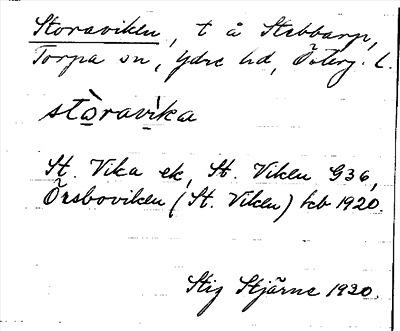 Storaviken, t å Stebbarp,
Torpa sn, Ydre hd, Österg. l.
stòravìka
St. Vika ek, St. Viken G36,
Örsboviken (St. Viken) hcb 1920.
Stig Stjärne 1930.